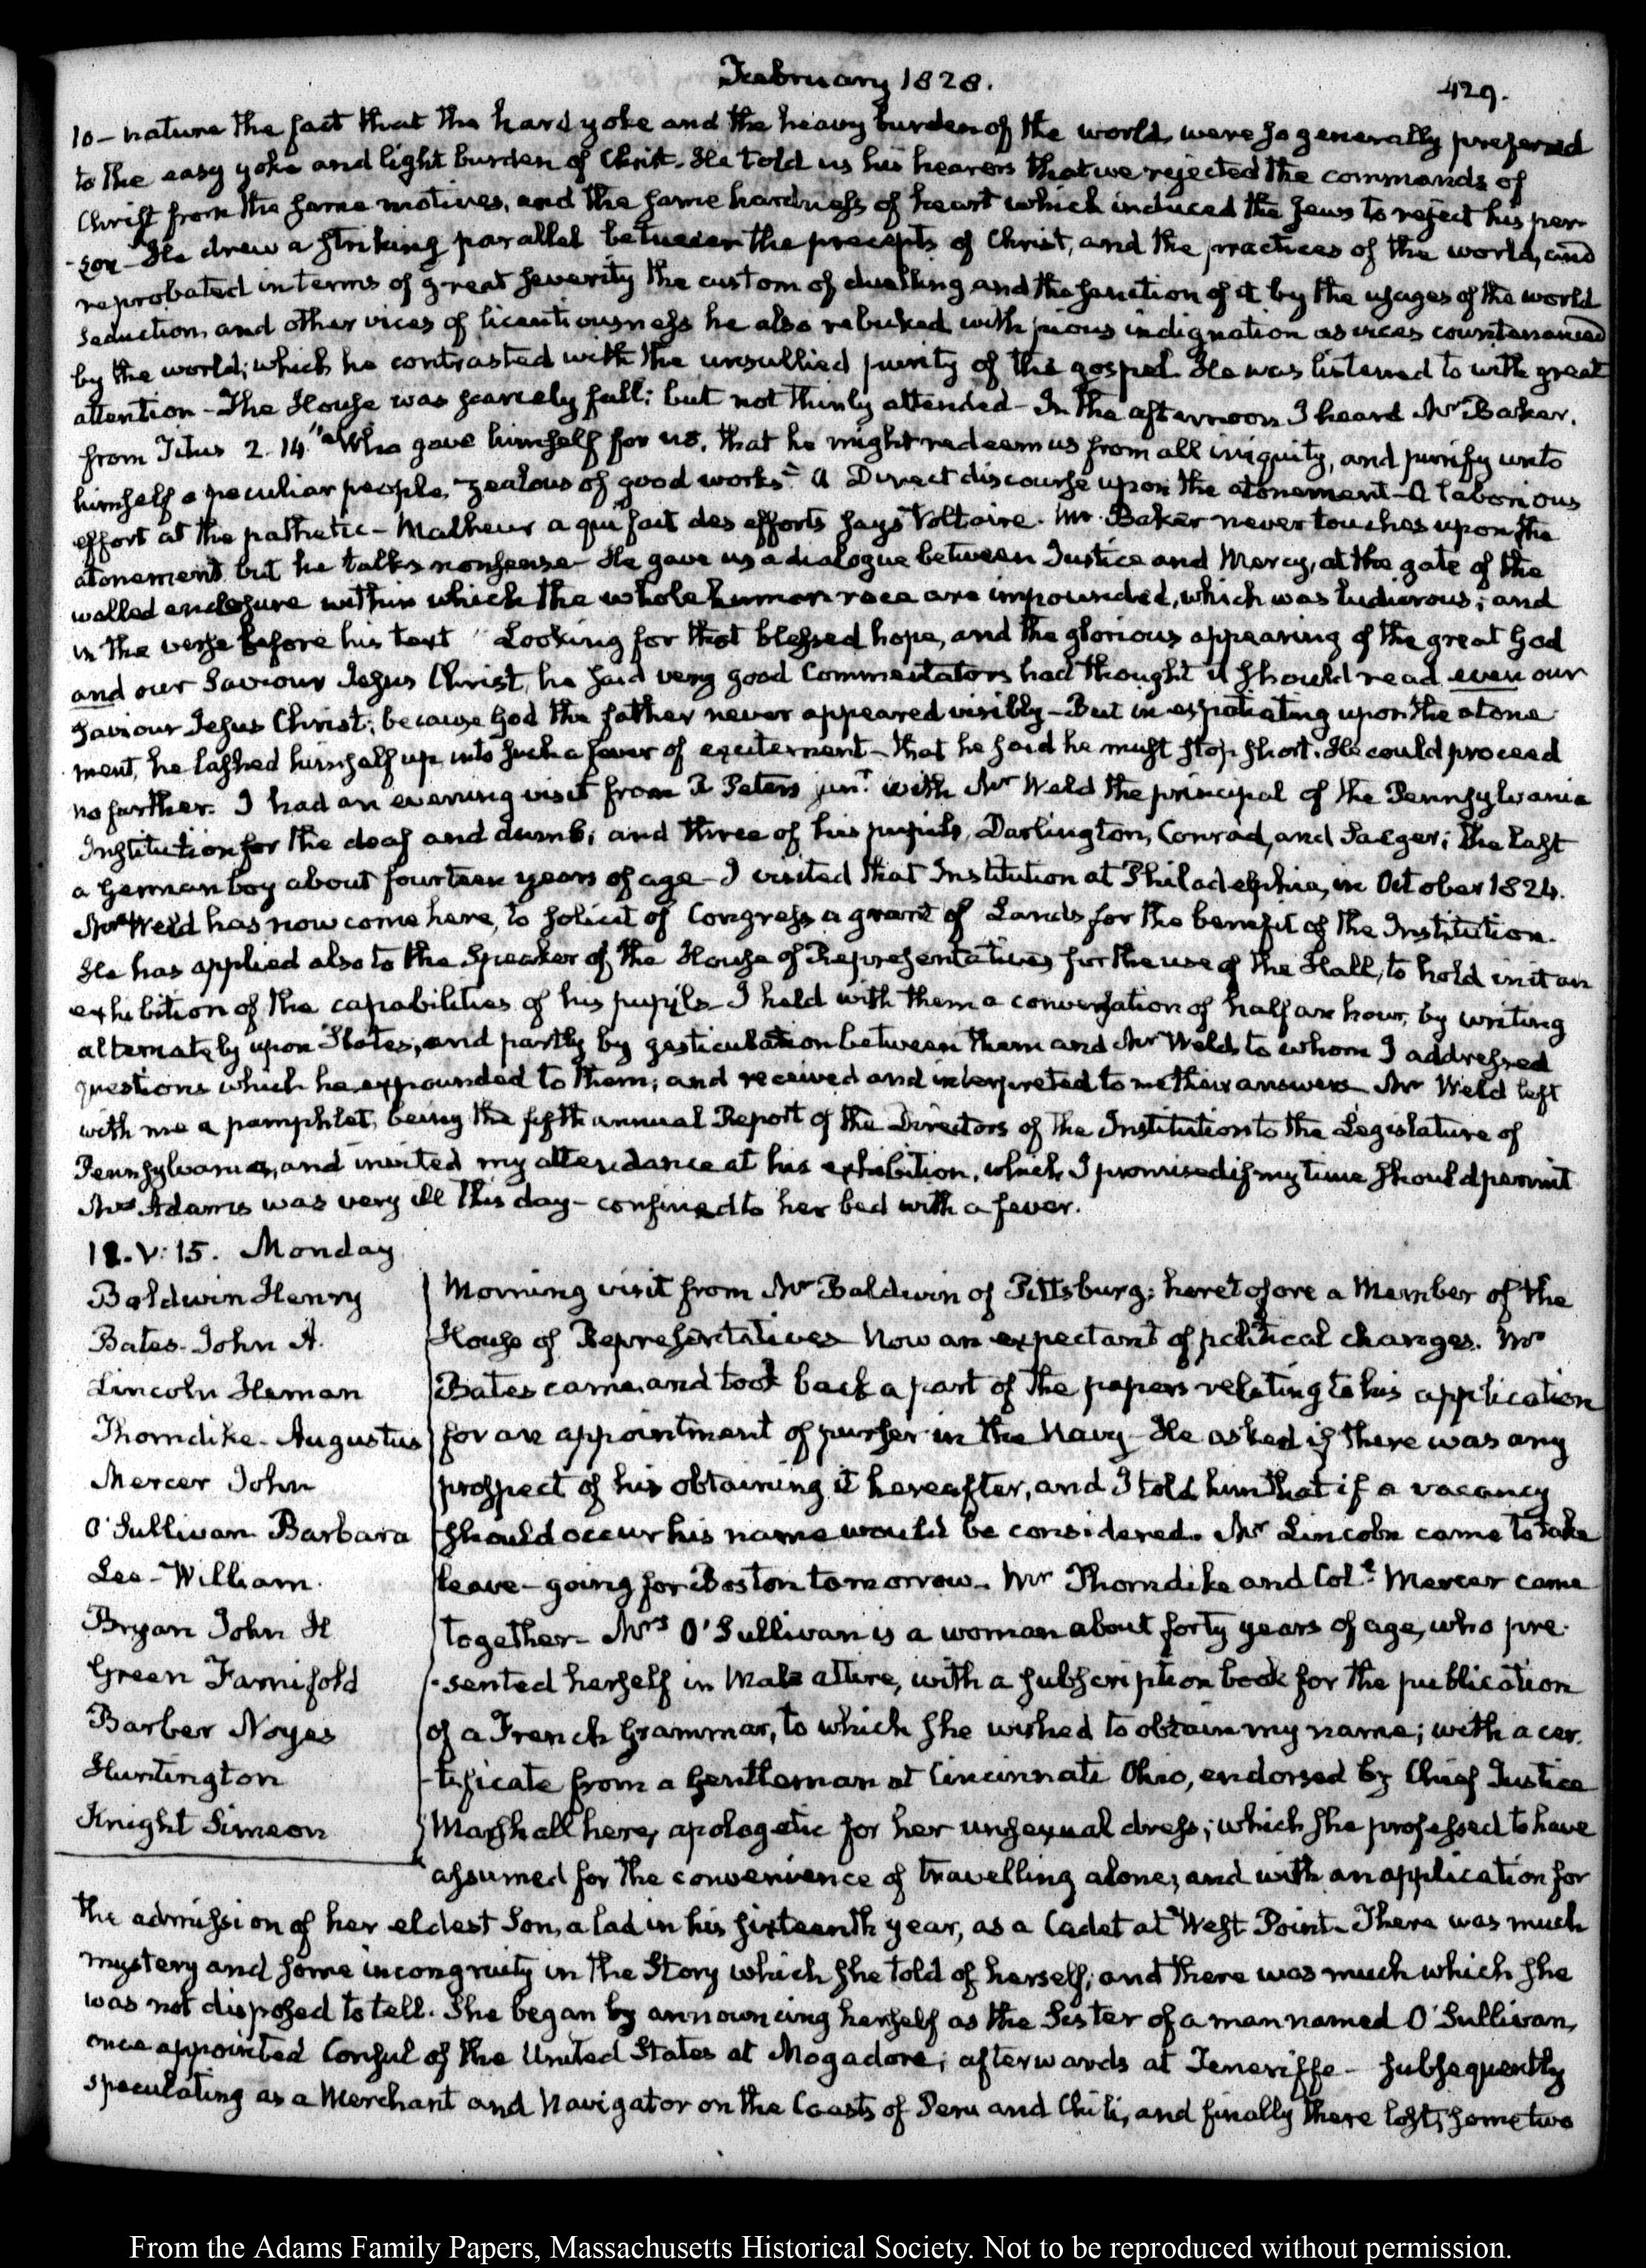 February 1828.
429.
10 — nature the fact that the hard yoke and the heavy burden of the world, were so generally preferred
to the easy yoke and light burden of Christ. He told us his hearers that we rejected the commands of
Christ from the same motives, and the same hardness of heart which induced the Jews to reject his per-
-son — He drew a striking parallel between the precepts of Christ, and the practices of the world, and
reprobated in terms of great severity the custom of duelling and the sanction of it by the usages of the world
Seduction, and other vices of licentiousness he also rebuked with pious indignation as vices countenanced
by the world; which he contrasted with the unsullied purity of the gospel. He was listened to with great
attention — The House was scarcely full; but not thinly attended — In the afternoon I heard Mr Baker,
from Titus 2. 14. "Who gave himself for us, that he might redeem us from all iniquity, and purify unto
himself a peculiar people, zealous of good works" — A Direct discourse upon the atonement — A laborious
effort at the pathetic — Malheur a qui fait des efforts says Voltaire. Mr. Baker never touches upon the
atonement but he talks nonsense — He gave us a dialogue between Justice and Mercy, at the gate of the
walled enclosure within which the whole human race are impounded, which was ludicrous; and
in the verse before his text "Looking for that blessed hope, and the glorious appearing of the great God
and our Saviour Jesus Christ, he said very good Commentators had thought it should read even our
Saviour Jesus Christ; because God the father never appeared visibly — But in expatiating upon the atone-
ment, he lashed himself up into such a fever of excitement — that he said he must stop short. He could proceed
no further. I had an evening visit from R Peters junr. with Mr Weld the principal of the Pennsylvania
Institution for the deaf and dumb; and three of his pupils, Darlington, Conrad, and Jaeger; the last
a German boy about fourteen years of age — I visited that Institution at Philadelphia, in October 1824.
Mr Weld has now come here, to solicit of Congress a grant of Lands for the benefit of the Institution.
He has applied also to the Speaker of the House of Representatives for the use of the Hall, to hold in it an
exhibition of the capabilities of his pupils — I held with them a conversation of half an hour, by writing
alternately upon Slates, and partly by gesticulation between them and Mr Weld, to whom I addressed
questions which he expounded to them; and received and interpreted to me their answers — Mr Weld left
with me a pamphlet, being the fifth annual Report of the Directors of the Institution to the Legislature of
Pennsylvania, and invited my attendance at his exhibition, which I promised if my time should permit
Mrs Adams was very ill this day — confined to her bed with a fever.
V:15. Monday
Baldwin Henry
Bates. John A.
Lincoln Heman
Thorndike. Augustus
Mercer John
O'Sullivan Barbara
Lee — William.
Bryan John H
Green Farnifold
Barber Noyes
Huntington
Knight Simeon
Morning visit from Mr Baldwin of Pittsburg; heretofore a Member of the
House of Representatives — Now an expectant of political changes. Mr
Bates came and took back a part of the papers relating to his application
for an appointment of purser in the Navy — He asked if there was any
prospect of his obtaining it hereafter, and I told him that if a vacancy
should occur his name would be considered. Mr Lincoln came to take
leave — going for Boston tomorrow. Mr Thorndike and Coll. Mercer came
together — Mrs O'Sullivan is a woman about forty years of age, who pre-
-sented herself in Male attire, with a subscription book for the publication
of a French Grammar, to which she wished to obtain my name; with a cer-
-tificate from a Gentleman at Cincinnati Ohio, endorsed by Chief Justice
Marshall here, apologetic for her unsexual dress; which she professed to have
assumed for the convenience of travelling alone; and with an application for
the admission of her eldest Son, a lad in his sixteenth year, as a Cadet at West Point — There was much
mystery and some incongruity in the Story which she told of herself; and there was much which she
was not disposed to tell. She began by announcing herself as the Sister of a man named O'Sullivan,
once appointed Consul of the United States at Mogadore; afterwards at Teneriffe — subsequently
speculating as a Merchant and Navigator on the Coasts of Peru and Chili, and finally there lost, some two
From the Adams Family Papers, Massachusetts Historical Society. Not to be reproduced without permission.